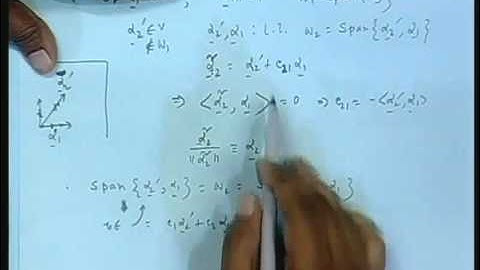 α₂' ∈ V α₂', α₁ : L.I. W₂ = Span{α₂', α₁}
∉ W₁
α̃₂ = α₂' + c₂₁ α₁
α₂'
⇒ <α̃₂, α₁> = 0 ⇒ c₂₁ = -<α₂', α₁>
α̃₂ / ||α̃₂|| ≡ α₂
Span{α₂', α₁} = W₂ =
= c₁α₂' + c₂α